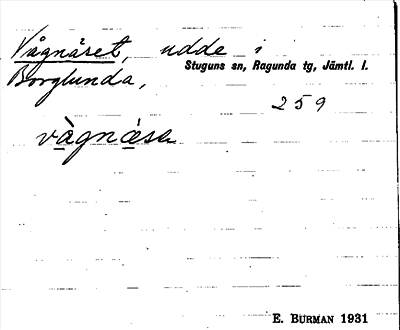 Vågnäset, udde i
Stuguns sn, Ragunda tg, Jämtl. l.
Borglunda,
259
vàgnése
E. BURMAN 1931